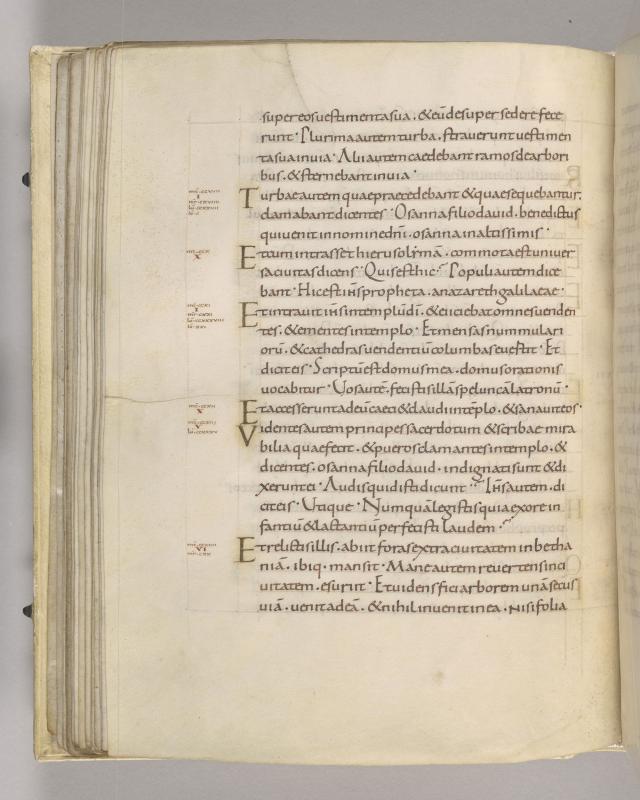 super eos uestimenta sua . & eū desuper sedere fece
runt · Plurima autem turba . strauerunt uestimen
ta sua in uia · Alii autem caedebant ramos de arbori
bus . & sternebant in uia ·
Turbae autem quae praecedebant & quae sequebantur .
clamabant dicentes · Osanna filio dauid . benedictus
qui uenit in nomine dn̄i . osanna in altissimis ·
Et cum intrasset hierusolymā . commota est uniuer
sa ciuitas dicens · Quis est hic · Populi autem dice
bant · Hic est ih̄s propheta . a nazareth galilaeae ·
Et intrauit ih̄s in templū dī . & eiciebat omnes uenden
tes . & ementes in templo · Et mensas nummulari
orū . & cathedras uendentiū columbas euertit · Et
dicit eis · Scriptū est domus mea . domus orationis
uocabitur · Uos autē . fecistis illā speluncā latronū ·
Et accesserunt ad eū caeci & claudi in tēplo . & sanauit eos ·
Videntes autem principes sacerdotum & scribae mira
bilia quae fecit . & pueros clamantes in templo . &
dicentes . osanna filio dauid . indignati sunt & di
xerunt ei · Audis quid isti dicunt · Ih̄s autem . di
cit eis · Utique · Numquā legistis quia ex ore in
fantiū & lactantiū perfecisti laudem ·
Et relictis illis . abiit foras extra ciuitatem in betha
niā . ibiq· mansit · Mane autem reuertens in ci
uitatem . esuriit · Et uidens fici arborem unā secus
uiā . uenit ad eā . & nihil inuenit in ea . nisi folia